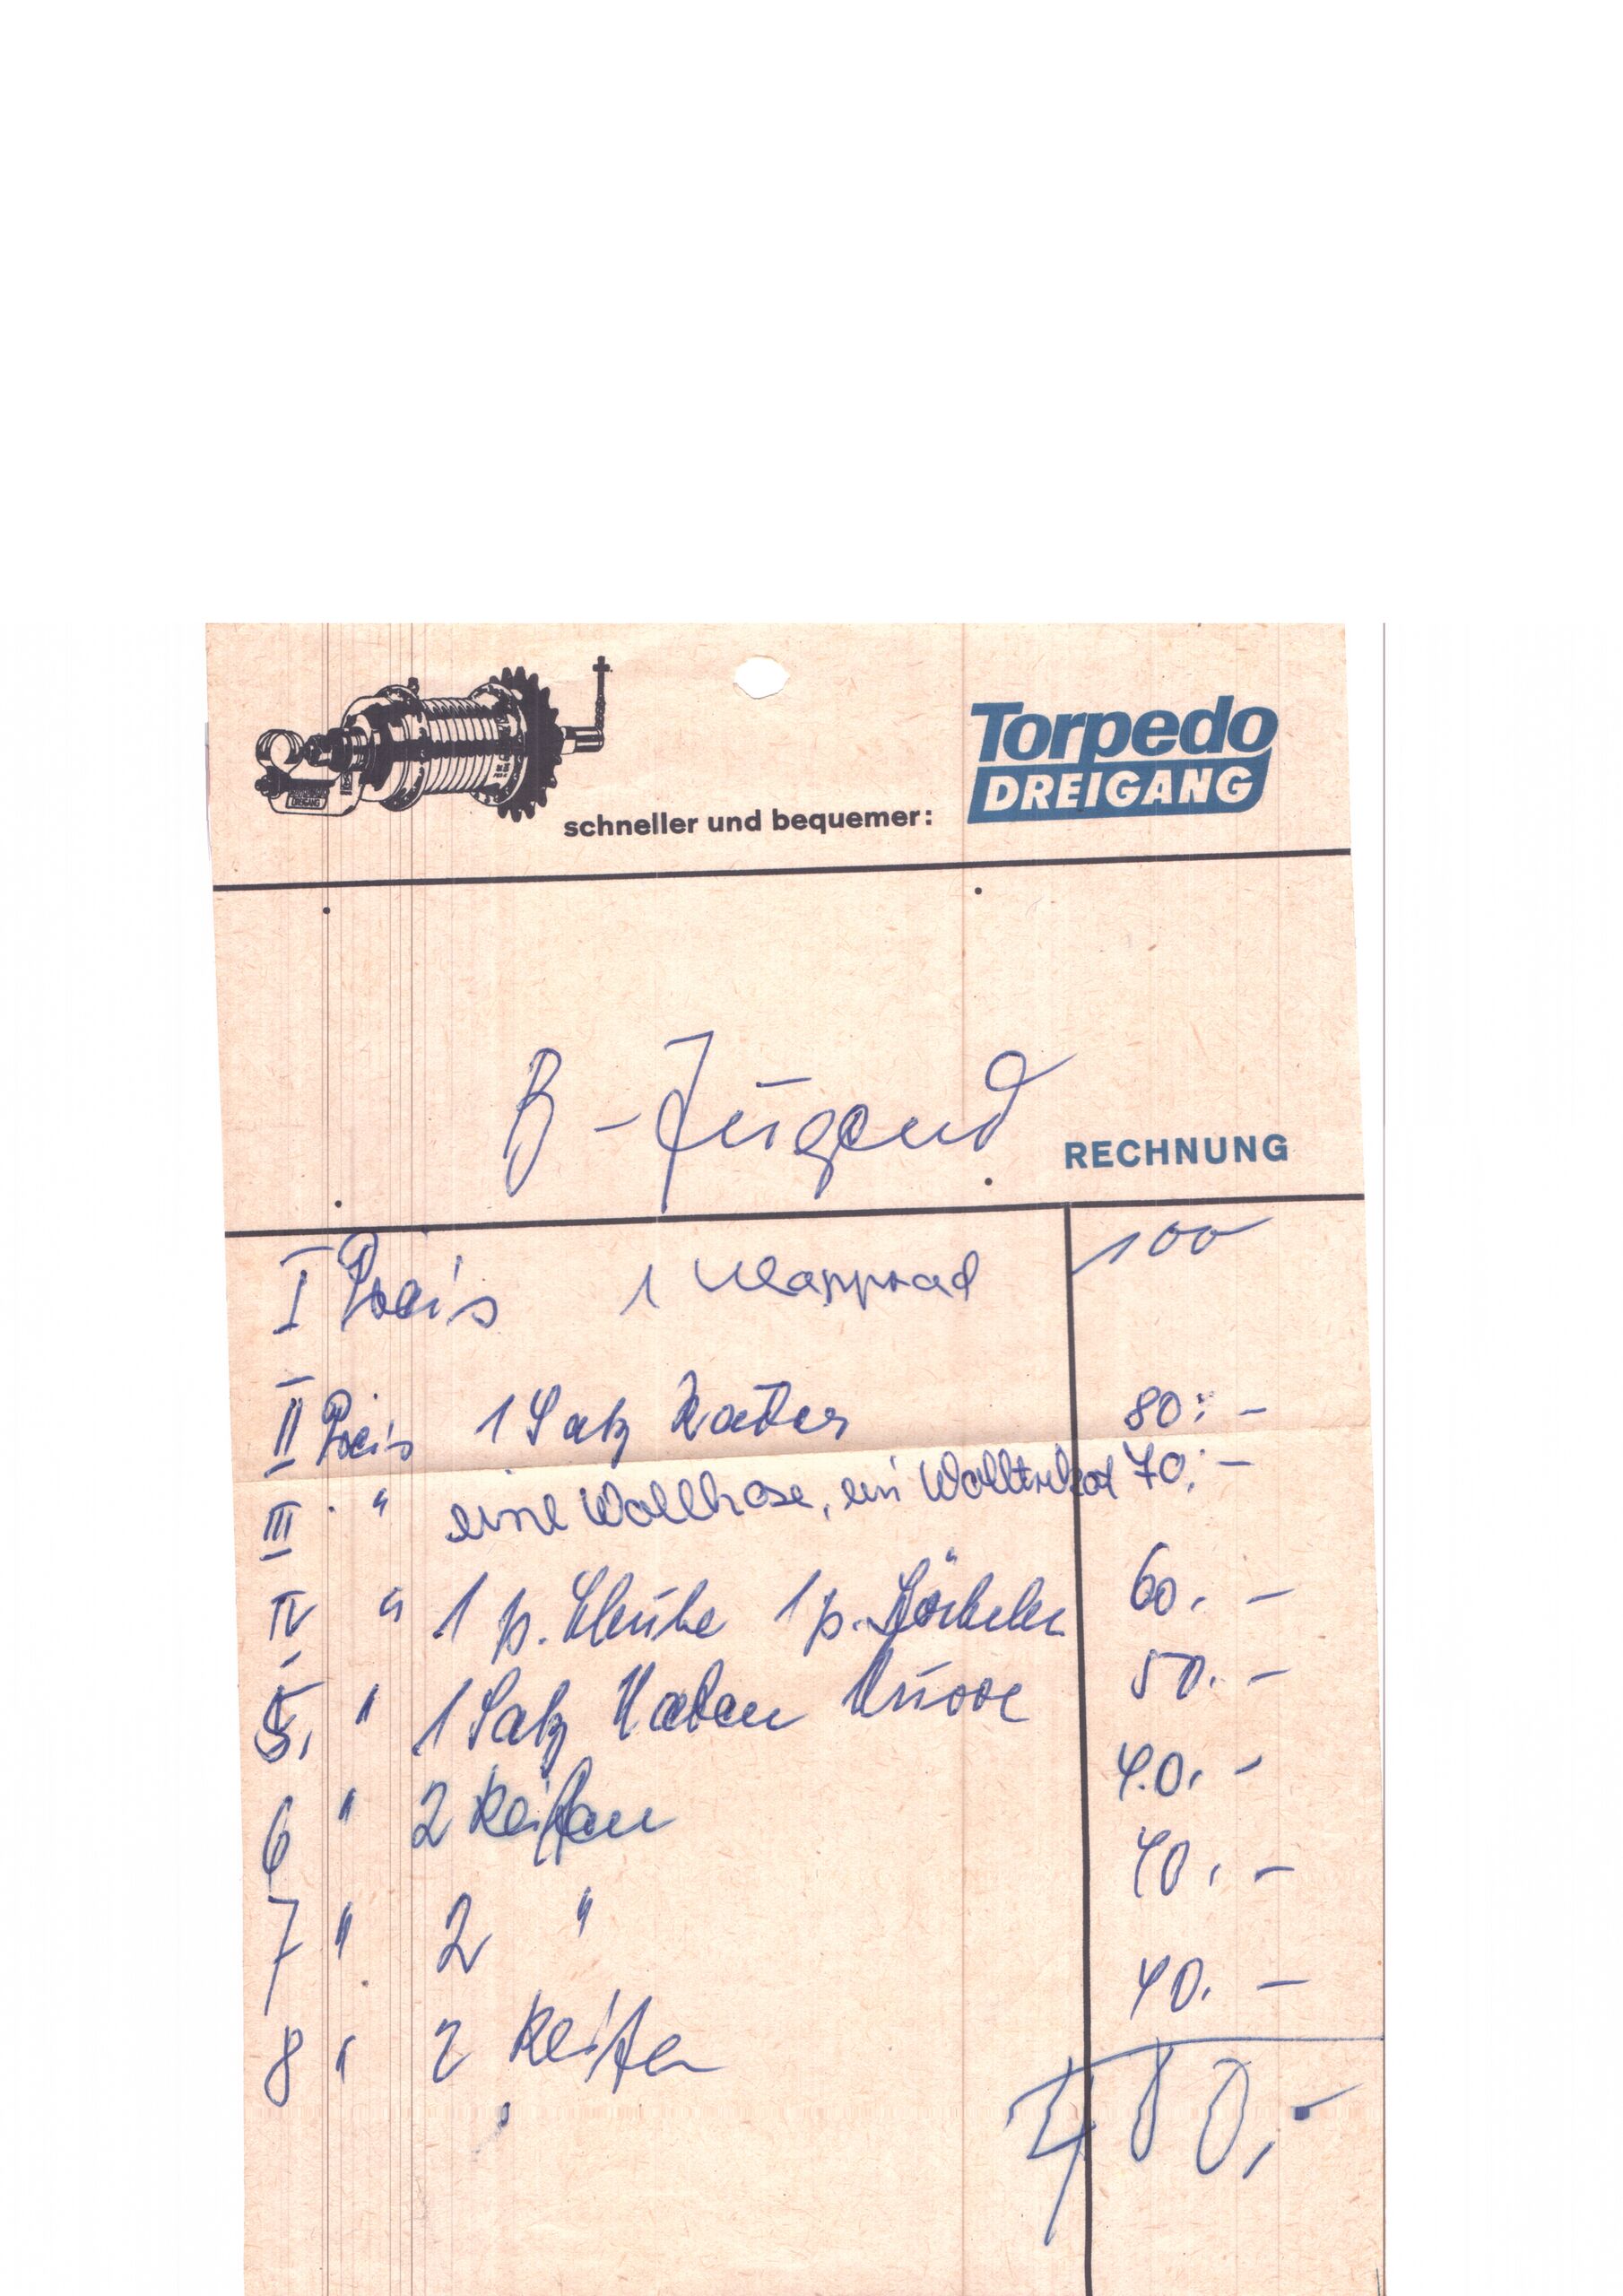 schneller und bequemer:
Torpedo
DREIGANG
B - Jugend
RECHNUNG
I Preis 1 Klapprad 100
II Preis 1 Satz Räder 80.-
III " " eine Wollhose, ein Wolltrikot 70.-
IV " 1 p. Schuhe 1 p. 60.-
5. " 1 Satz Naben 50.-
6 " 2 Reifen 40.-
7 " 2 " 40.-
8 " 2 Reifen 40.-
480,-